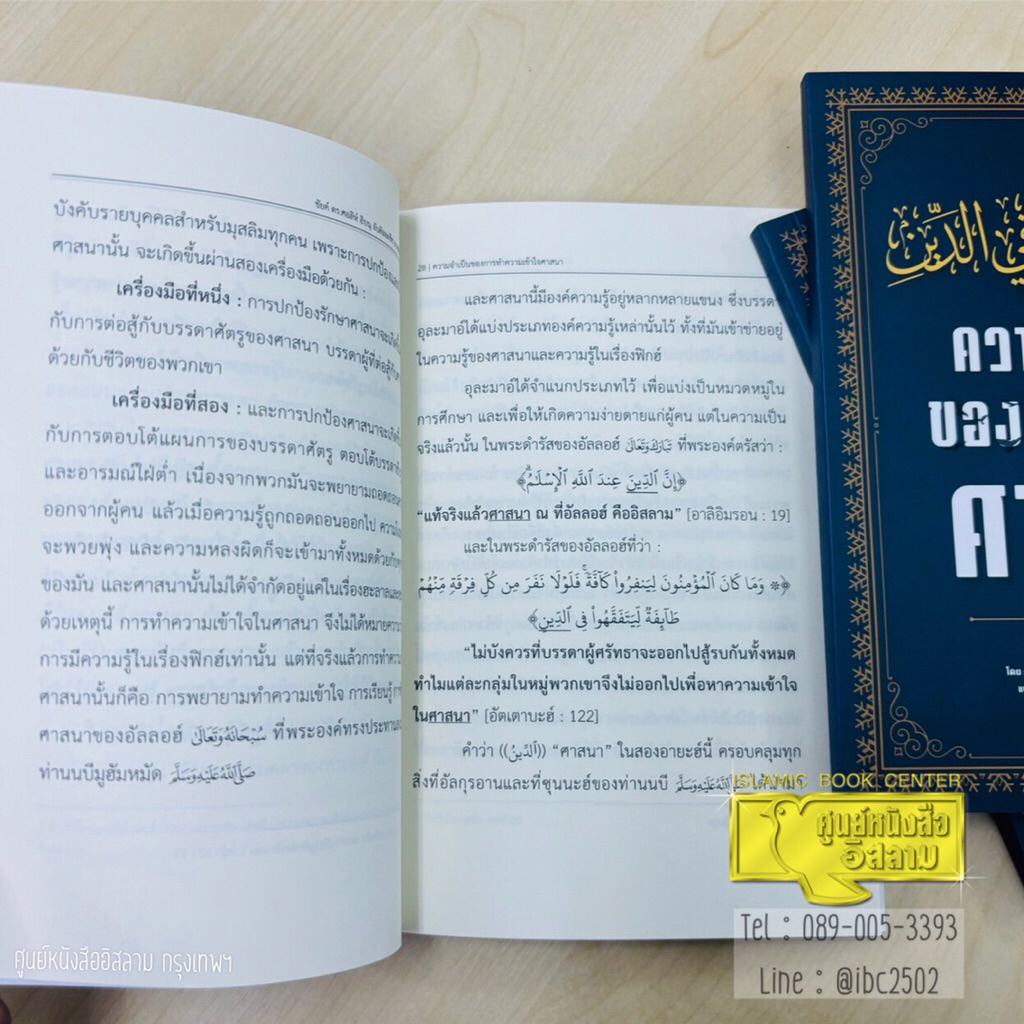 ชัยค์ ดร.
บังคับรายบุคคลสำหรับมุสลิมทุกคน เพราะการปกป้อง
ศาสนานั้น จะเกิดขึ้นผ่านสองเครื่องมือด้วยกัน :
เครื่องมือที่หนึ่ง : การปกป้องรักษาศาสนาจะ
กับการต่อสู้กับบรรดาศัตรูของศาสนา บรรดาผู้ที่ต่อสู้
ด้วยกับชีวิตของพวกเขา
เครื่องมือที่สอง : และการปกป้องศาสนาจะ
กับการตอบโต้แผนการของบรรดาศัตรู ตอบโต้บรรดา
และอารมณ์ใฝ่ต่ำ เนื่องจากพวกมันจะพยายามถอดถอน
ออกจากผู้คน แล้วเมื่อความรู้ถูกถอดถอนออกไป
จะพวยพุ่ง และความหลงผิดก็จะเข้ามาทั้งหมดด้วยกับ
ของมัน และศาสนานั้นไม่ได้จำกัดอยู่แค่ในเรื่องฮะลาล
ด้วยเหตุนี้ การทำความเข้าใจในศาสนา จึงไม่ได้หมายความ
การมีความรู้ในเรื่องฟิกฮ์เท่านั้น แต่ที่จริงแล้วการทำความ
ศาสนานั้นก็คือ การพยายามทำความเข้าใจ การเรียนรู้
ศาสนาของอัลลอฮ์ سُبْحَانَهُ وَتَعَالَى ที่พระองค์ทรงประทาน
ท่านนบีมูฮัมหมัด صَلَّى اللَّهُ عَلَيْهِ وَسَلَّمَ
28 | ความจำเป็นของการทำความเข้าใจศาสนา
และศาสนานี้มีองค์ความรู้อยู่หลากหลายแขนง ซึ่งบรรดา
อุละมาอ์ได้แบ่งประเภทองค์ความรู้เหล่านั้นไว้ ทั้งที่มันเข้าข่ายอยู่
ในความรู้ของศาสนาและความรู้ในเรื่องฟิกฮ์
อุละมาอ์ได้จำแนกประเภทไว้ เพื่อแบ่งเป็นหมวดหมู่ใน
การศึกษา และเพื่อให้เกิดความง่ายดายแก่ผู้คน แต่ในความเป็น
จริงแล้วนั้น ในพระดำรัสของอัลลอฮ์ تَبَارَكَ وَتَعَالَى ที่พระองค์ตรัสว่า :
﴿إِنَّ ٱلدِّينَ عِندَ ٱللَّهِ ٱلْإِسْلَٰمُ﴾
“แท้จริงแล้วศาสนา ณ ที่อัลลอฮ์ คืออิสลาม” [อาลิอิมรอน : 19]
และในพระดำรัสของอัลลอฮ์ที่ว่า :
﴿۞ وَمَا كَانَ ٱلْمُؤْمِنُونَ لِيَنفِرُوا۟ كَآفَّةً ۚ فَلَوْلَا نَفَرَ مِن كُلِّ فِرْقَةٍ مِّنْهُمْ
طَآئِفَةٌ لِّيَتَفَقَّهُوا۟ فِى ٱلدِّينِ﴾
“ไม่บังควรที่บรรดาผู้ศรัทธาจะออกไปสู้รบกันทั้งหมด
ทำไมแต่ละกลุ่มในหมู่พวกเขาจึงไม่ออกไปเพื่อหาความเข้าใจ
ในศาสนา” [อัตเตาบะฮ์ : 122]
คำว่า ((الدِّينُ)) “ศาสนา” ในสองอายะฮ์นี้ ครอบคลุมทุก
สิ่งที่อัลกุรอานและที่ซุนนะฮ์ของท่านนบี صَلَّى اللَّهُ عَلَيْهِ وَسَلَّمَ
في الدين
ควา
ของ
ศา
โดย
ISLAMIC BOOK CENTER
ศูนย์หนังสือ
อิสลาม
Tel : 089-005-3393
Line : @ibc2502
ศูนย์หนังสืออิสลาม กรุงเทพฯ